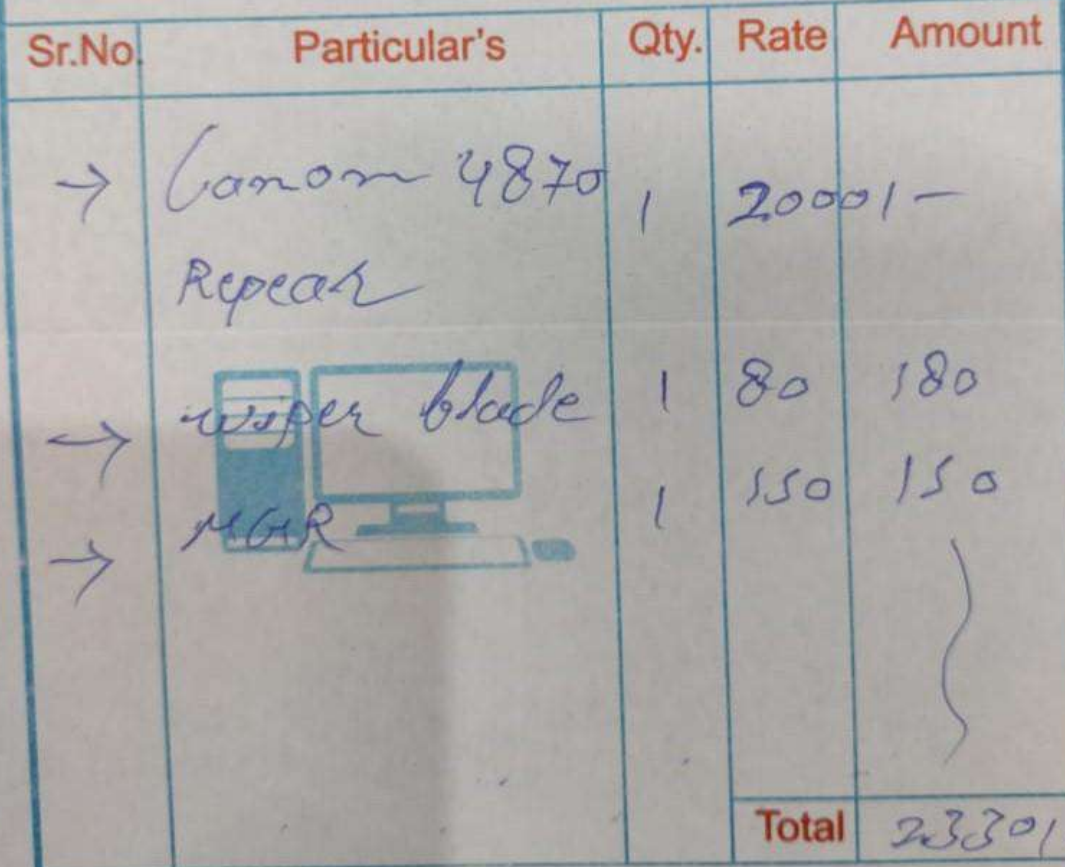 Sr.No. Particular's Qty. Rate Amount
→ Canon 4870 1 2000/-
Repear
→ wiper blade 1 80 180
→ MGR 1 150 150
Total 2330/